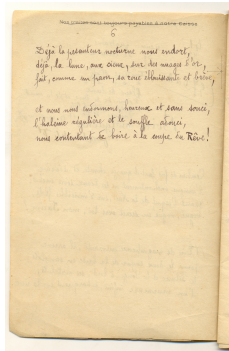 6
Déjà la pesanteur nocturne nous endort,
déjà, la lune, aux cieux, sur des nuages d'or,
fait, comme un paon, sa roue éblouissante et brève,
et nous nous endormons, heureux et sans souci,
l'haleine régulière et le souffle adouci,
nous contentant de boire à la coupe du Rêve!